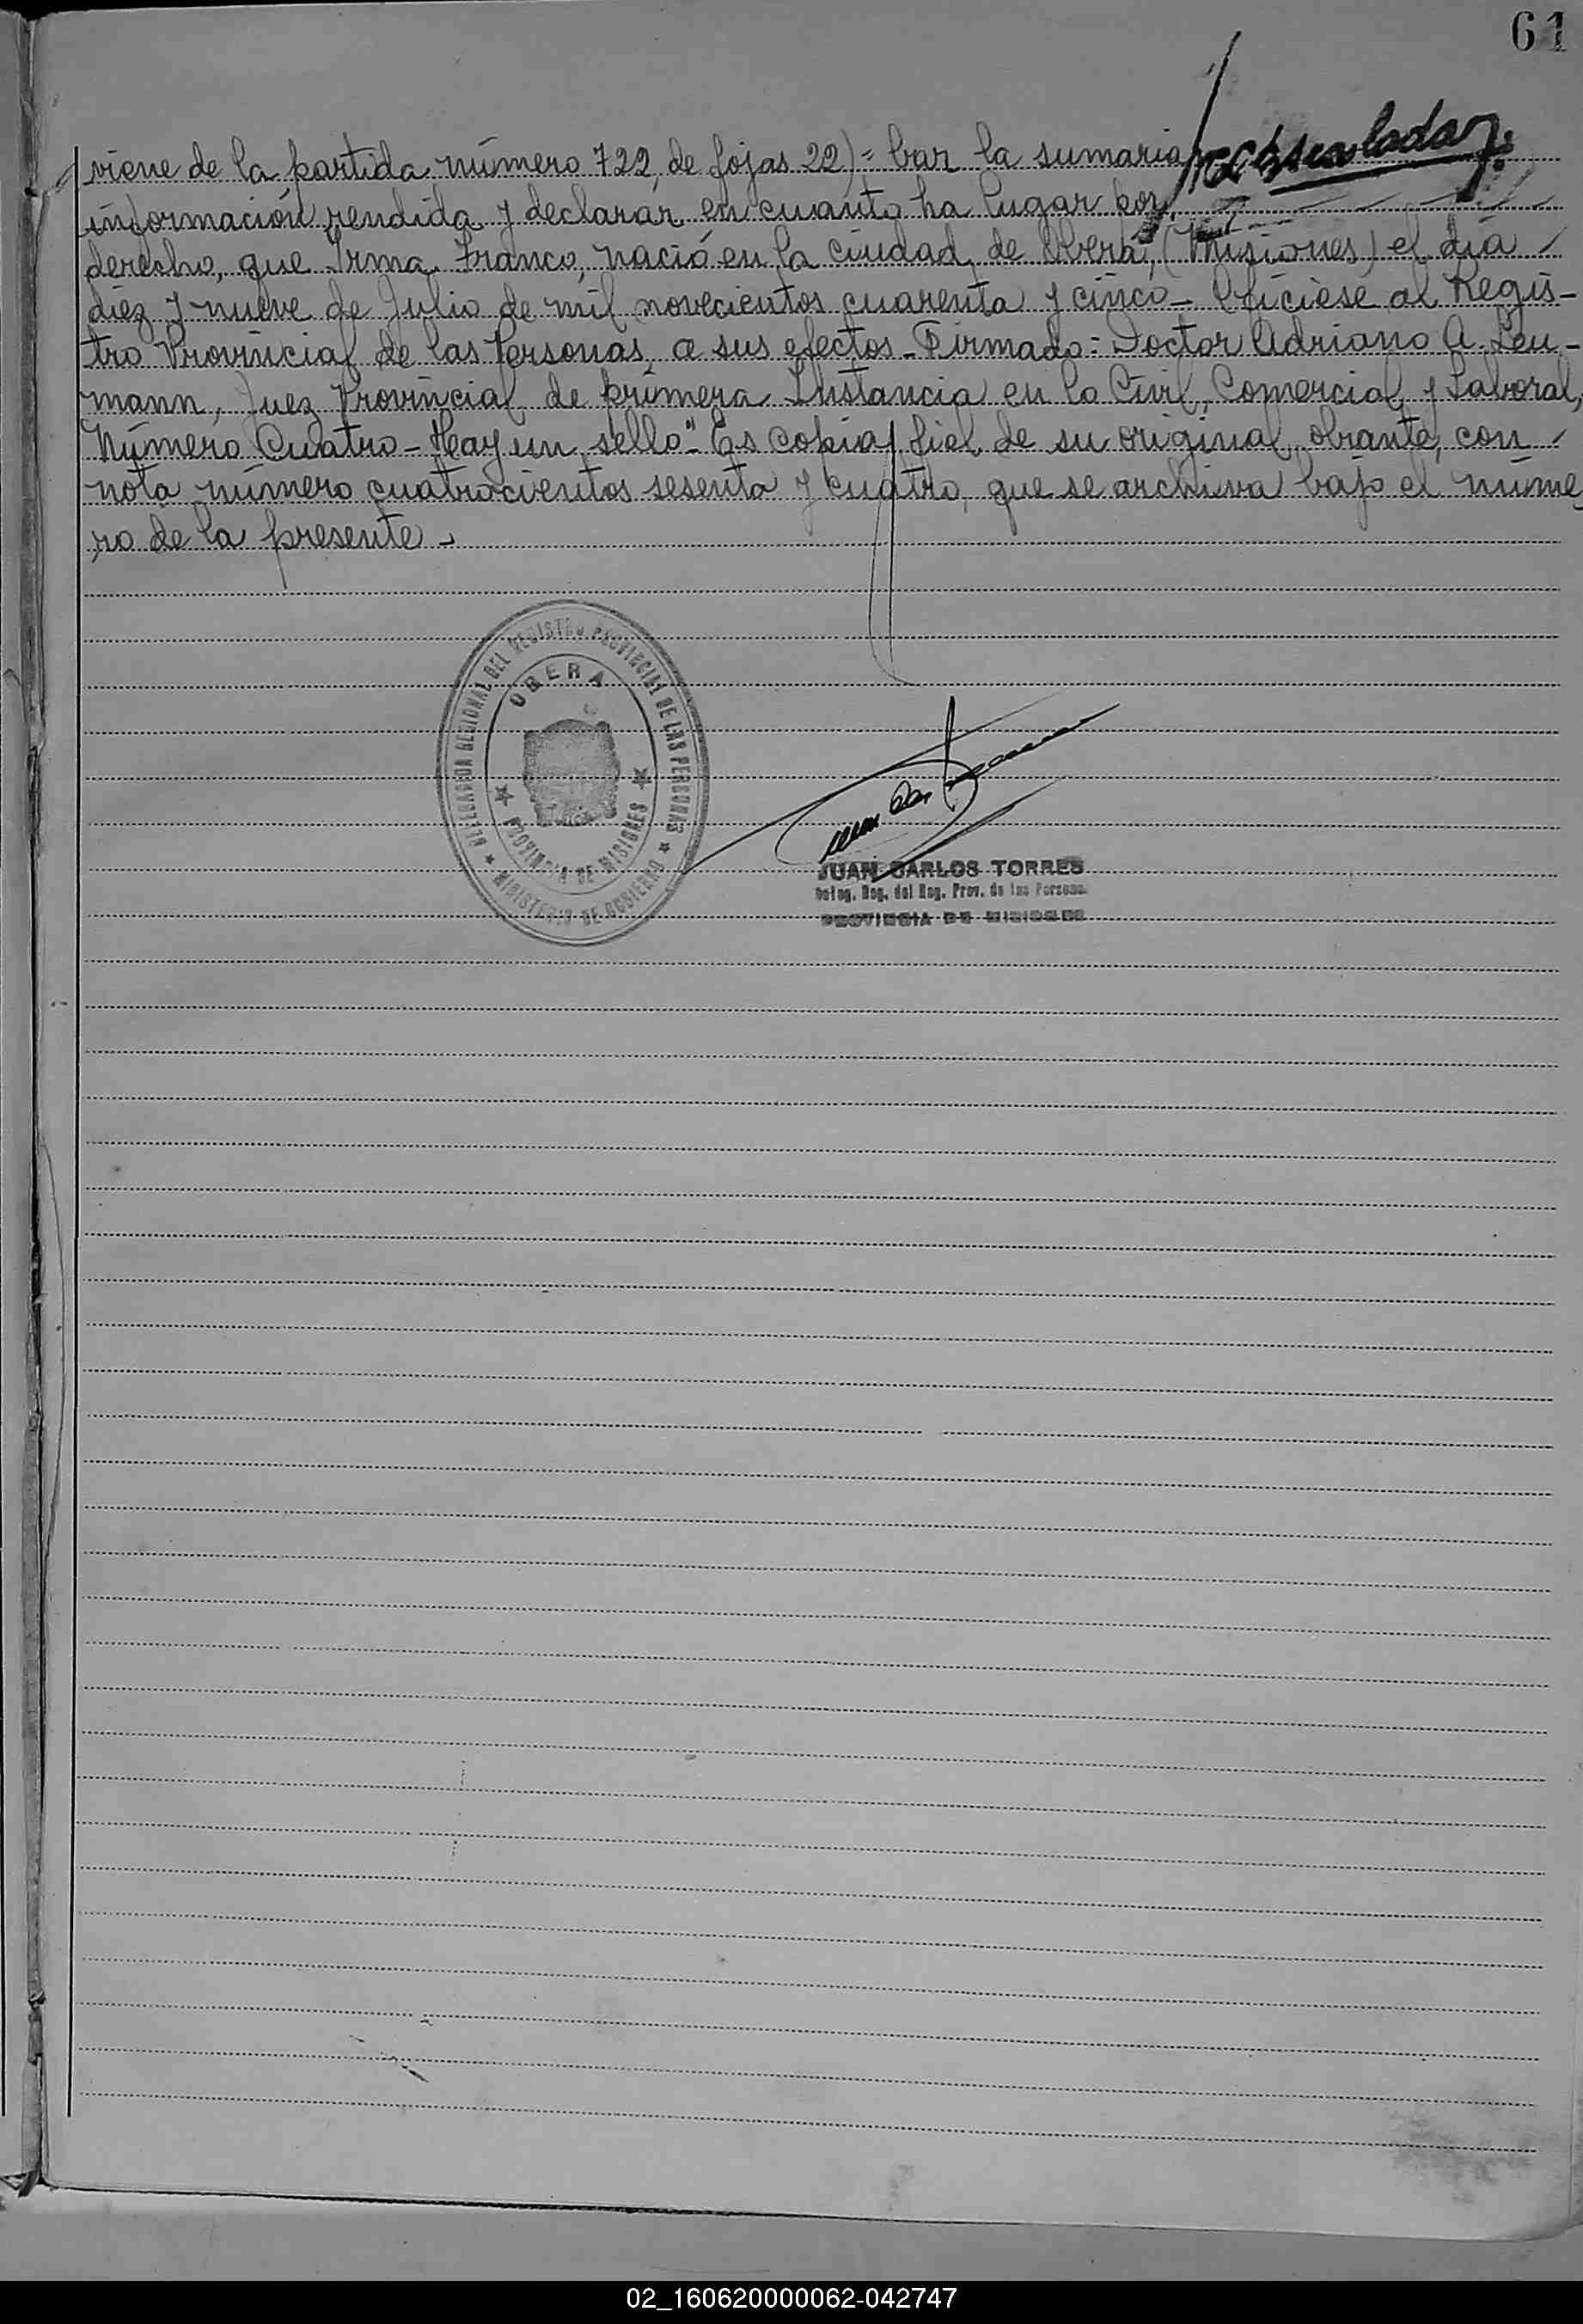 61
viene de la partida número 722, de fojas 22) = bar la sumaria
información rendida y declarar en cuanto ha lugar por
derecho, que Irma Franco, nació en la ciudad de Oberá, (Misiones) el día
diez y nueve de Julio de mil novecientos cuarenta y cinco - Ofíciese al Regis-
tro Provincial de las Personas a sus efectos - Firmado: Doctor Adriano A. Leu-
mann, Juez Provincial de primera Instancia en lo Civil, Comercial y Laboral,
Número Cuatro - Hay un sello" - Es copia fiel de su original, obrante, con
nota número cuatrocientos sesenta y cuatro, que se archiva bajo el núme
ro de la presente -
DELEGACION REGIONAL DEL REGISTRO PROVINCIAL DE LAS PERSONAS
OBERA
PROVINCIA DE MISIONES
MINISTERIO DE GOBIERNO
JUAN CARLOS TORRES
Deleg. Reg. del Reg. Prov. de las Personas
PROVINCIA DE MISIONES
02_160620000062-042747